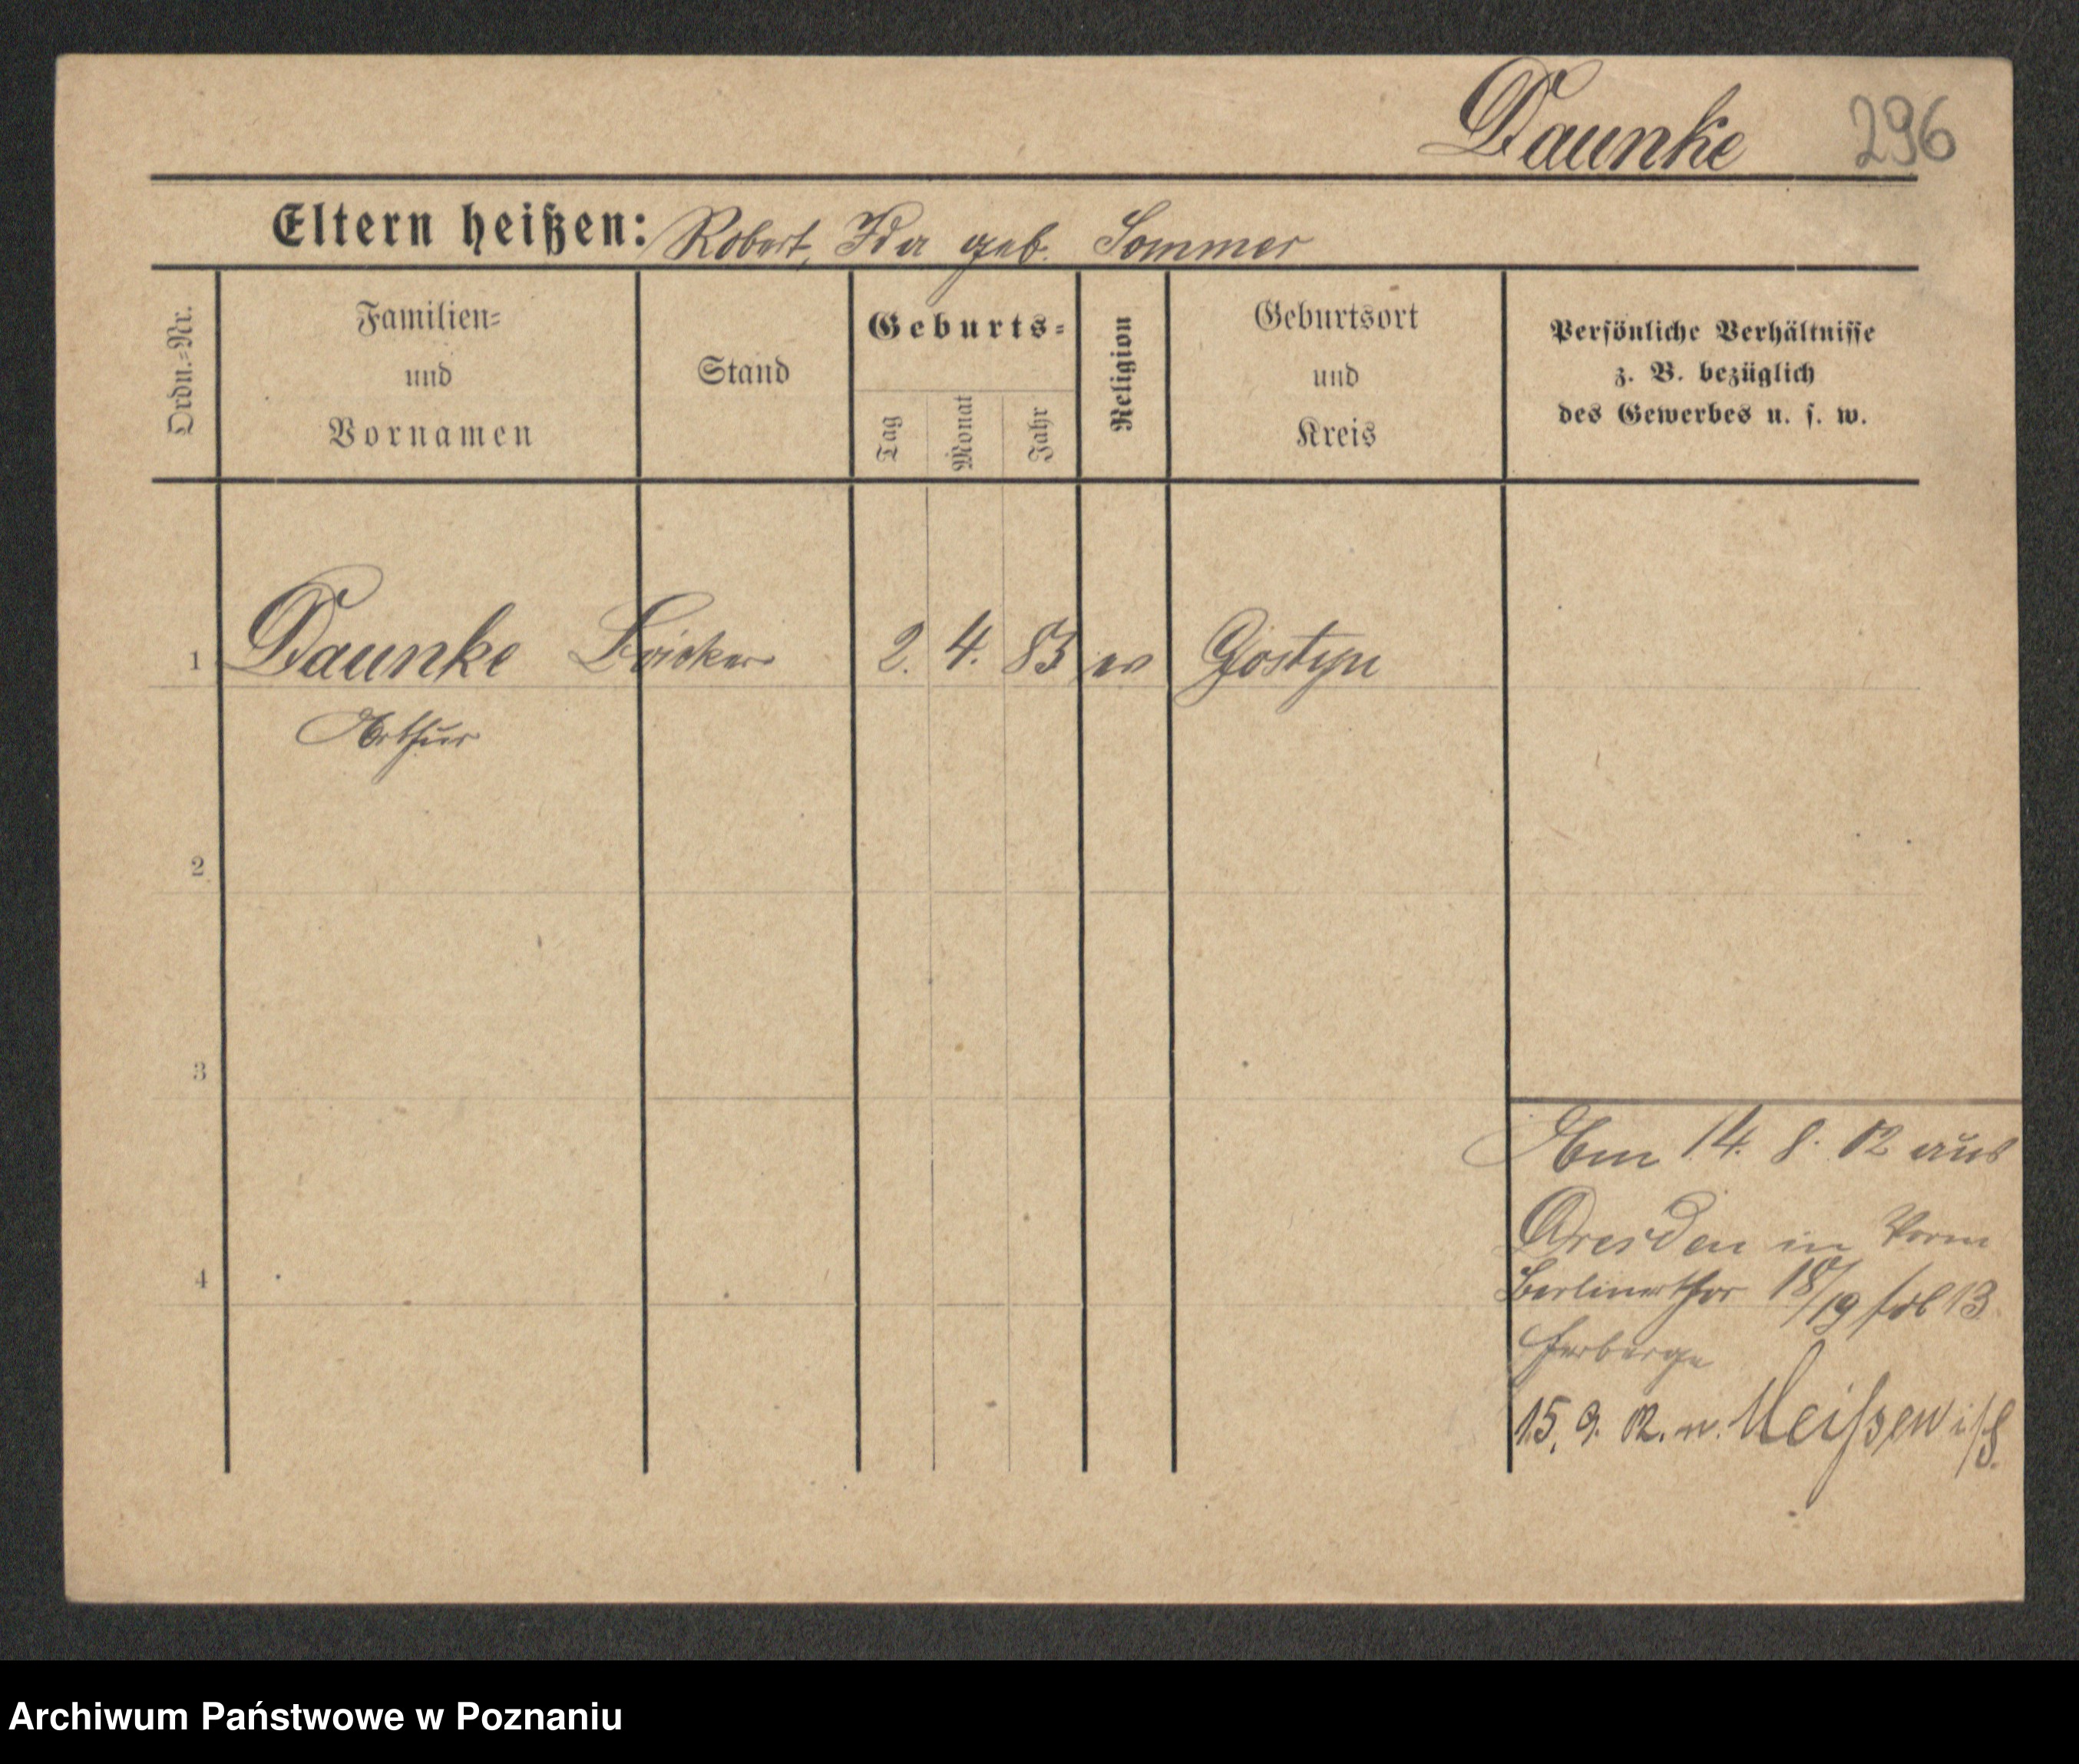 Daunke 296
Eltern heißen: Robert, Ida geb. Sommer
Ordn.=Nr.
Familien=
und
Vornamen
Stand
Geburts=
Tag
Monat
Jahr
Religion
Geburtsort
und
Kreis
Persönliche Verhältnisse
z. B. bezüglich
des Gewerbes u. s. w.
1 Daunke 2. 4. 83 ev Gostyn
Arthur
2
3
4
Am 14. 8. 02 aus
Dresden in
Berlinerthor 18/19 13
Herberge
15. 9. 02. n. Meißen i/S.
Archiwum Państwowe w Poznaniu